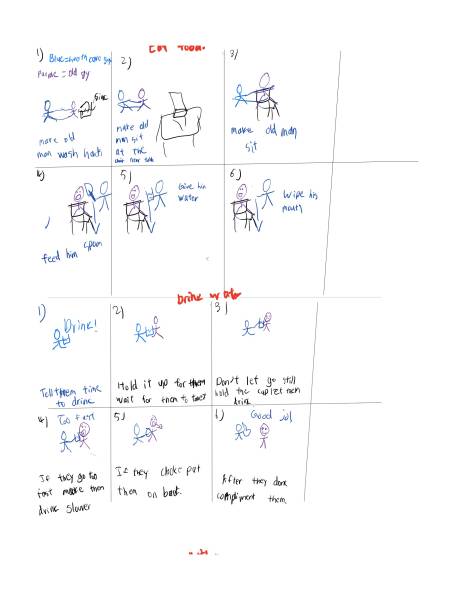 Eat food.
1) Blue = health care
Purple = old guy
Sink
make old
man wash hands
2)
make old
man sit
at the
3)
make old man
sit
4)
feed him spoon
5)
Give him
water
6)
Wipe his
mouth
Drink water
1)
Drink!
Tell them time
to drink
2)
Hold it up for them
wait for them to
3)
Don't let go still
hold the cup let them
drink
4) Too fast
If they go too
fast make them
drink slower
5)
If they choke pat
them on back.
6)
Good job
After they done
compliment them.